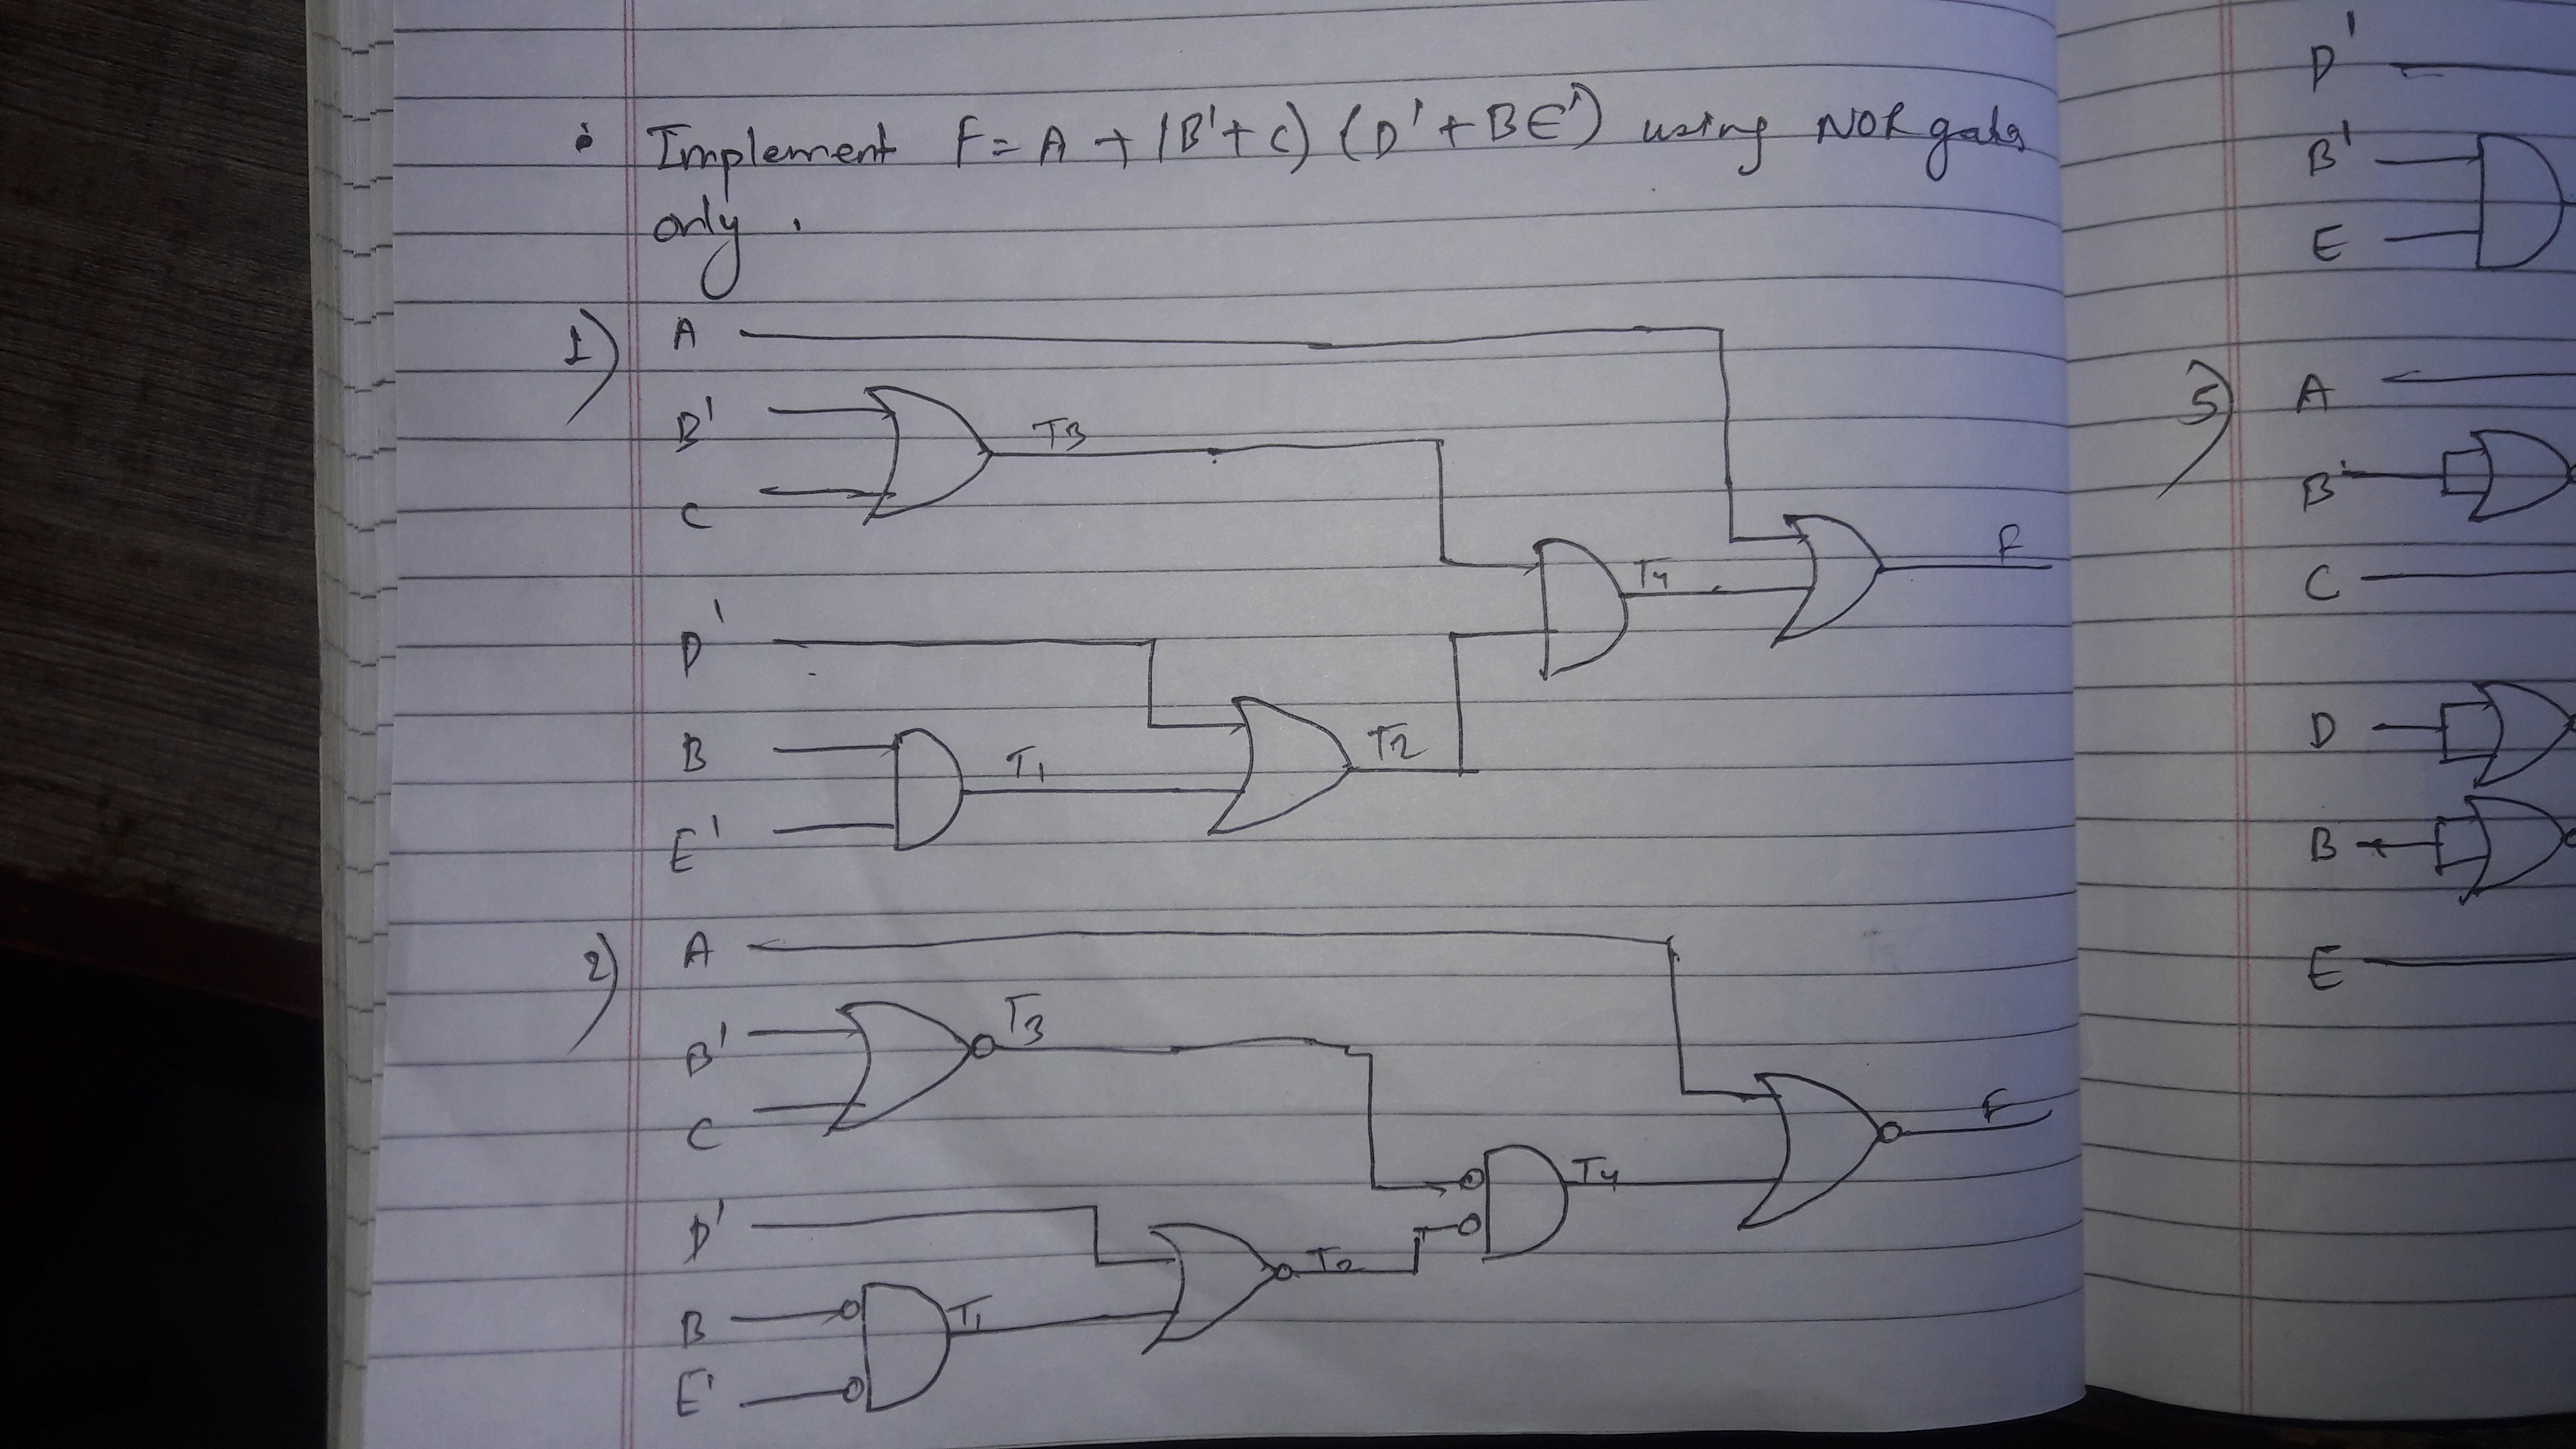 • Implement F = A + (B'+C) (D'+BE') using NOR gates
only.
1)
A
B'
C
T3
D'
B
E'
T1
T2
T4
F
2)
A
B'
C
T3
D'
B
E'
T1
T2
T4
F
D'
B'
E
5)
A
B
C
D
B
E